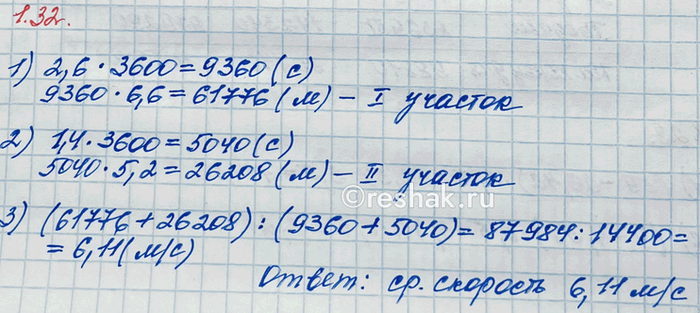 1.32.
1) 2,6 · 3600 = 9360 (с)
9360 · 6,6 = 61776 (м) – I участок
2) 1,4 · 3600 = 5040 (с)
5040 · 5,2 = 26208 (м) – II участок
©reshak.ru
3) (61776 + 26208) : (9360 + 5040) = 87984 : 14400 =
= 6,11 (м/с)
Ответ: ср. скорость 6,11 м/с